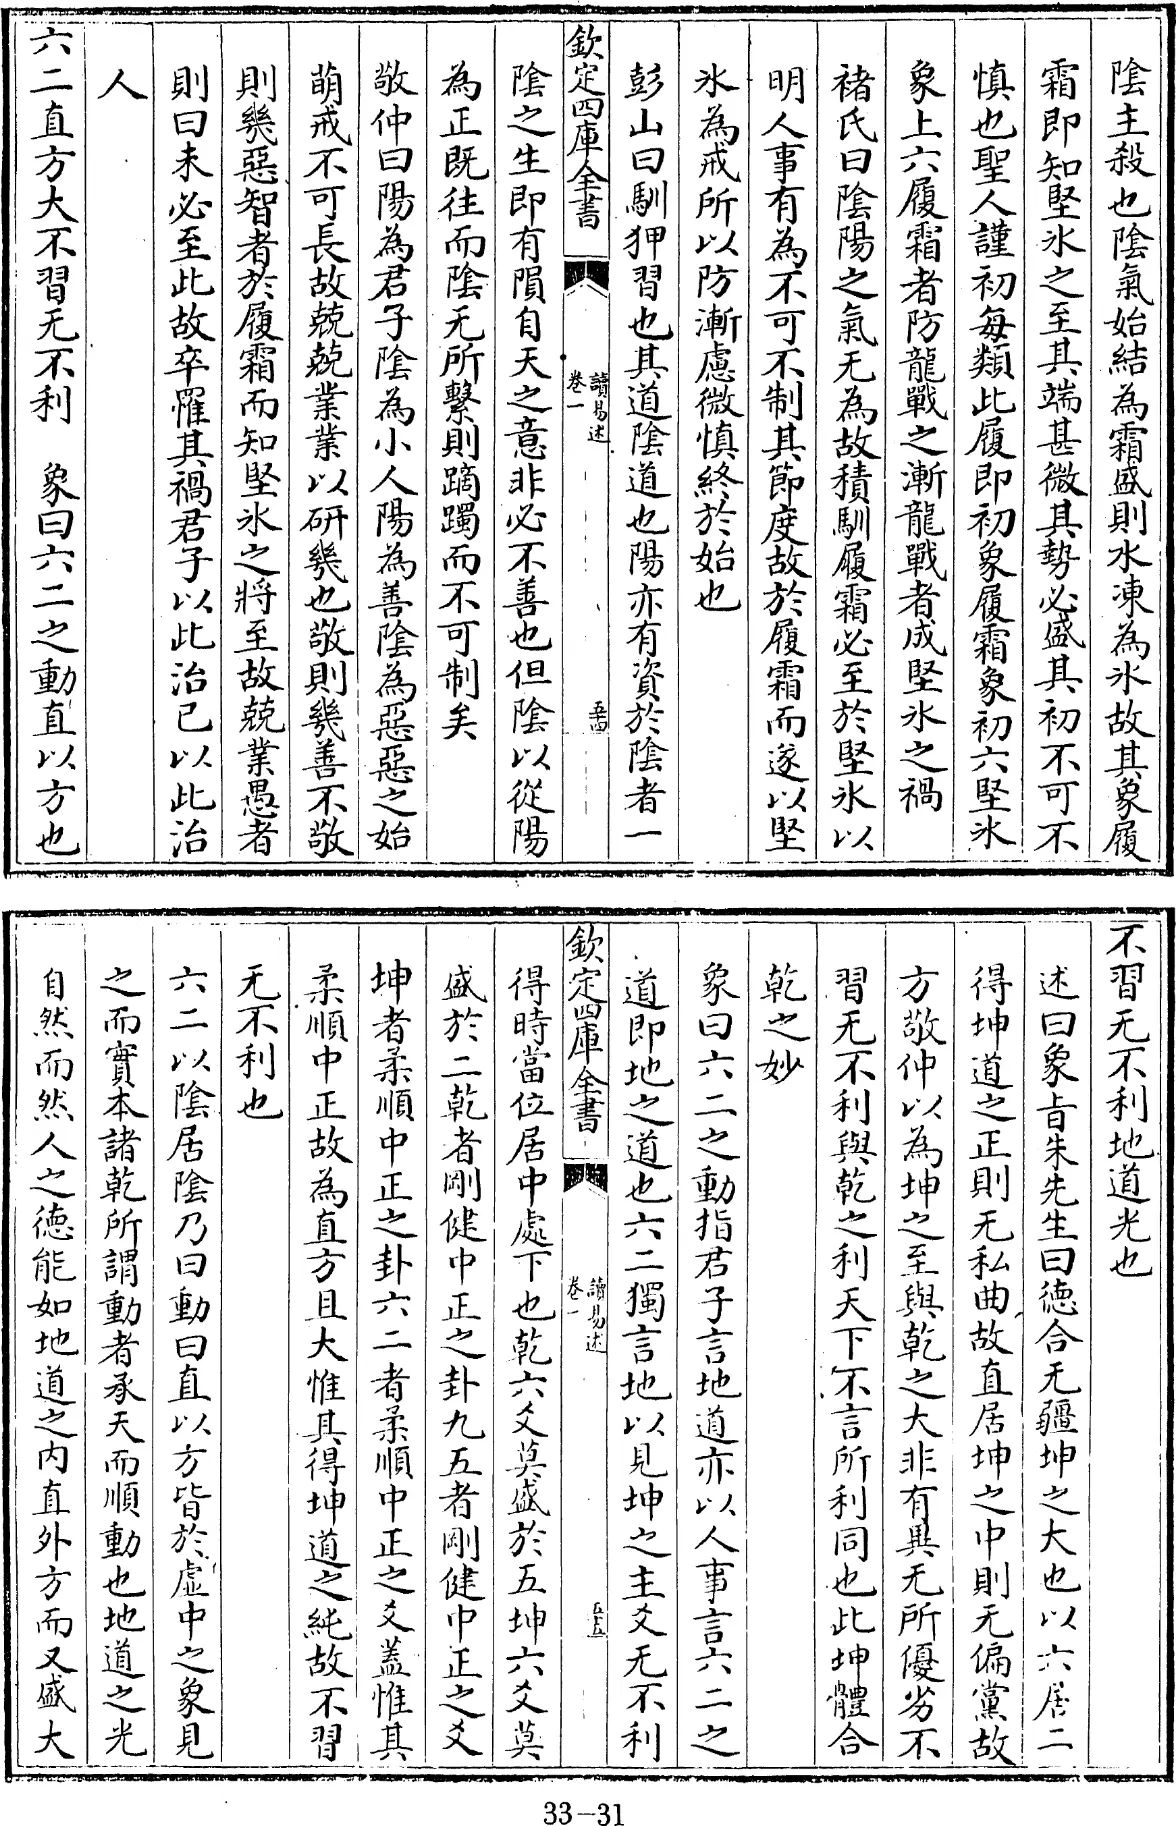 陰主殺也陰氣始結為霜盛則水凍為氷故其象履
霜即知堅氷之至其端甚微其勢必盛其初不可不
慎也聖人謹初每類此履即初象履霜象初六堅氷
象上六履霜者防龍戰之漸龍戰者成堅氷之禍
褚氏曰陰陽之氣无為故積馴履霜必至於堅氷以
明人事有為不可不制其節度故於履霜而遂以堅
氷為戒所以防漸慮微慎終於始也
彭山曰馴狎習也其道陰道也陽亦有資於陰者一
欽定四庫全書
讀易述
卷一
五十四
陰之生即有隕自天之意非必不善也但陰以從陽
為正既往而陰无所繫則蹢躅而不可制矣
敬仲曰陽為君子陰為小人陽為善陰為惡惡之始
萌戒不可長故兢兢業業以研幾也敬則幾善不敬
則幾惡智者於履霜而知堅氷之將至故兢業愚者
則曰未必至此故卒罹其禍君子以此治已以此治
人
六二直方大不習无不利 象曰六二之動直以方也
不習无不利地道光也
述曰象旨朱先生曰德合无疆坤之大也以六居二
得坤道之正則无私曲故直居坤之中則无偏黨故
方敬仲以為坤之至與乾之大非有異无所優劣不
習无不利與乾之利天下不言所利同也此坤體合
乾之妙
象曰六二之動指君子言地道亦以人事言六二之
道即地之道也六二獨言地以見坤之主爻无不利
欽定四庫全書
讀易述
卷一
五十五
得時當位居中處下也乾六爻莫盛於五坤六爻莫
盛於二乾者剛健中正之卦九五者剛健中正之爻
坤者柔順中正之卦六二者柔順中正之爻蓋惟其
柔順中正故為直方且大惟其得坤道之純故不習
无不利也
六二以陰居陰乃曰動曰直以方皆於虛中之象見
之而實本諸乾所謂動者承天而順動也地道之光
自然而然人之德能如地道之内直外方而又盛大
33-31